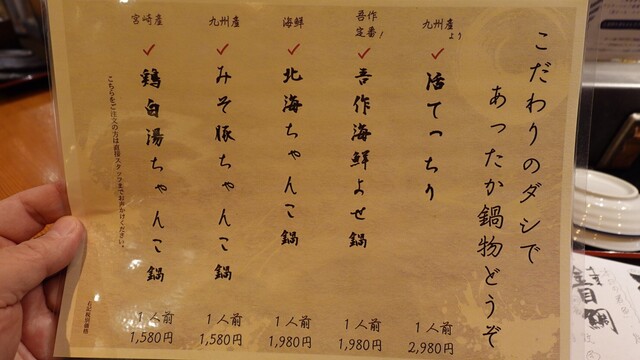 こだわりのダシで
あったか鍋物どうぞ
九州産より
活てっちり
1人前
2,980円
吾作
定番!
吾作海鮮よせ鍋
1人前
1,980円
海鮮
北海ちゃんこ鍋
1人前
1,980円
九州産
みそ豚ちゃんこ鍋
1人前
1,580円
宮崎産
鶏白湯ちゃんこ鍋
1人前
1,580円
こちらをご注文の方は直接スタッフまでお声かけください。